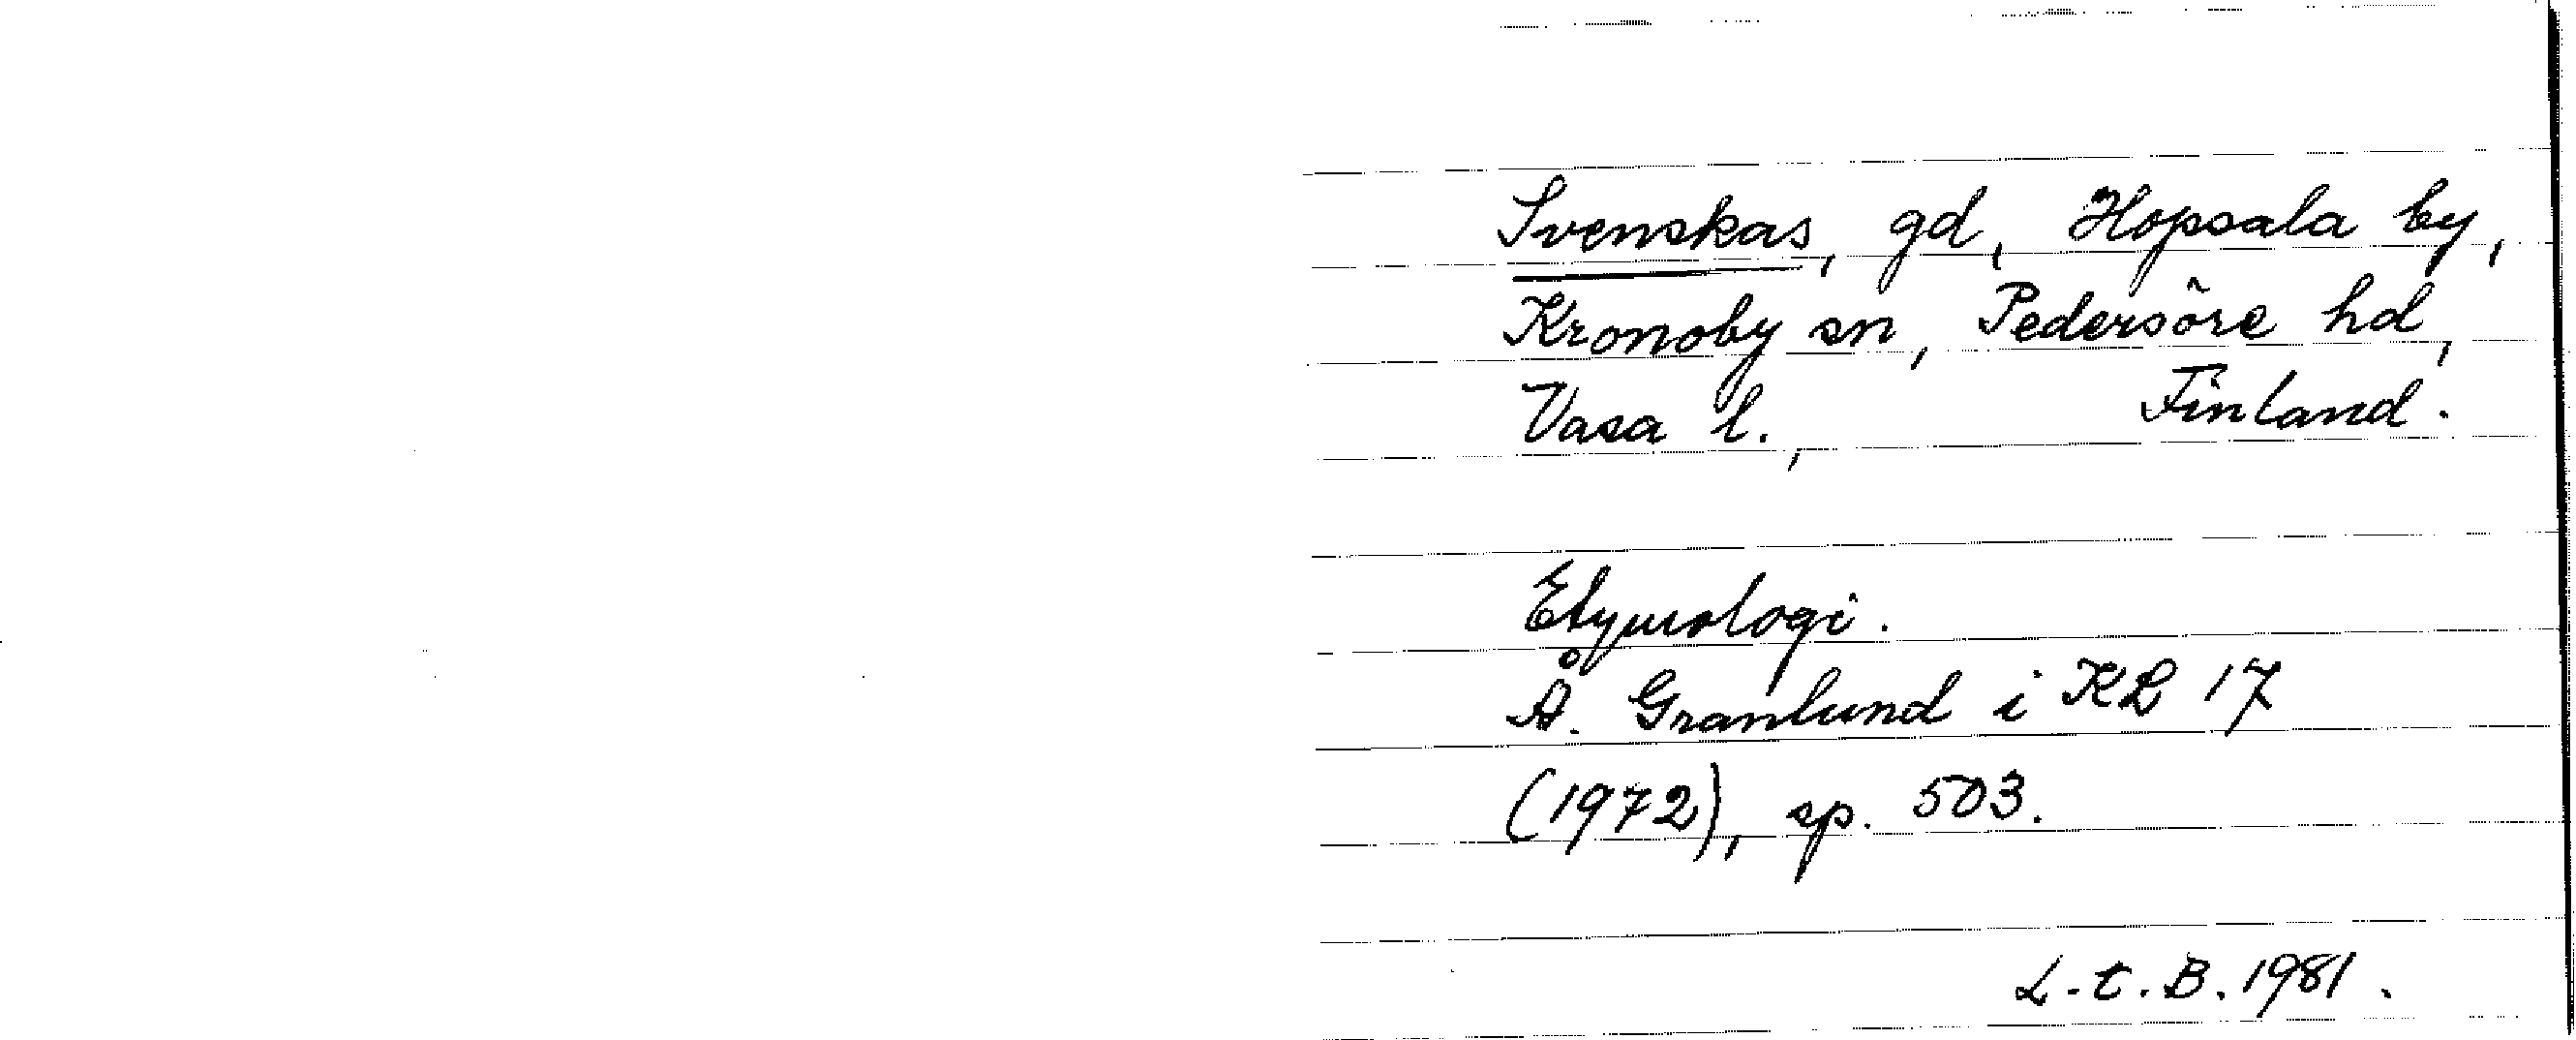 Svenskas, gd, Hopsala by,
Kronoby sn, Pedersöre hd,
Vasa l., Finland.
Etymologi.
Å. Granlund i KL 17
(1972), sp. 503.
L.t.B. 1981.